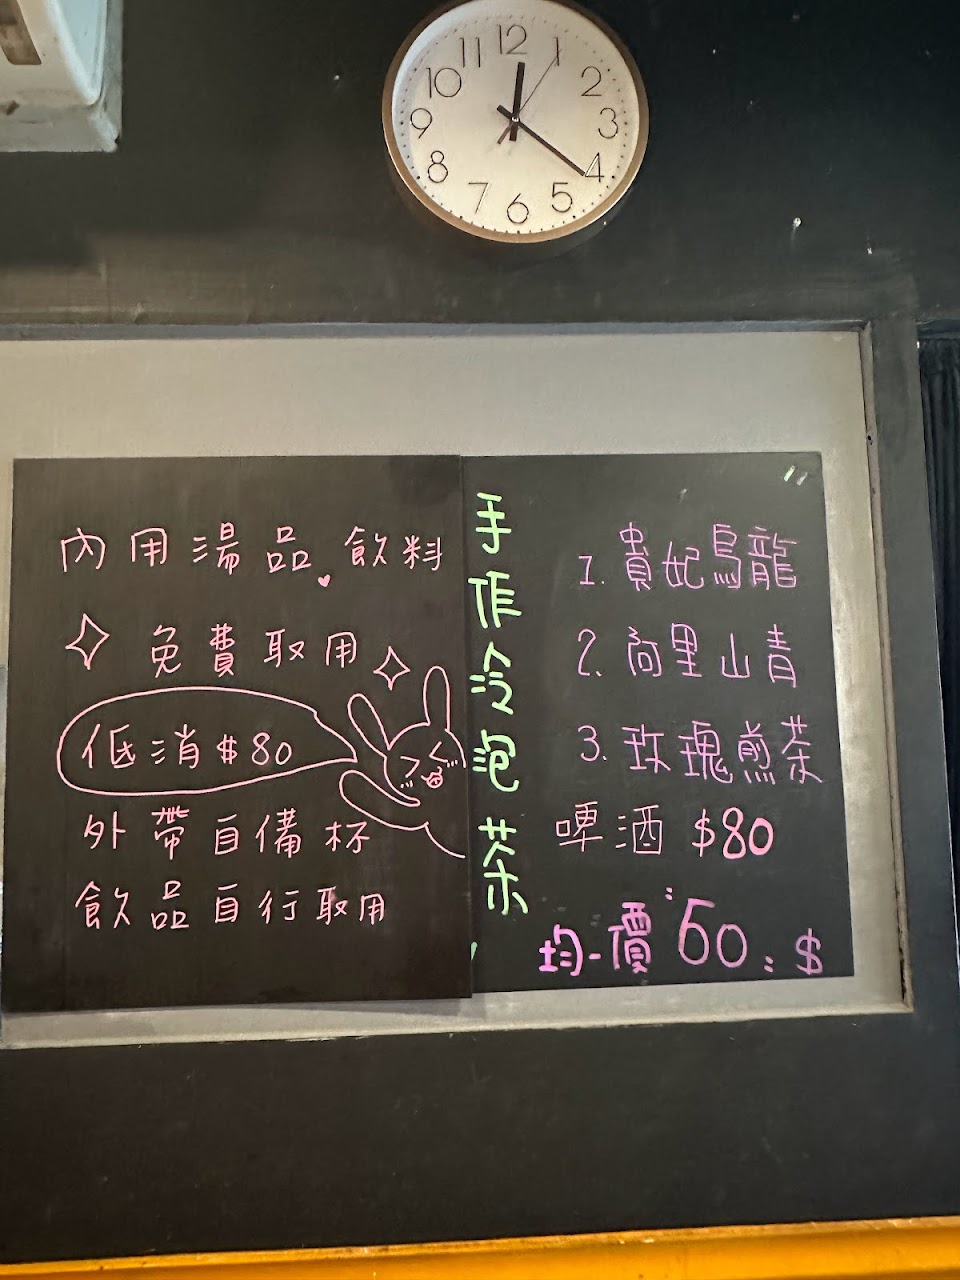 12
1
2
3
4
5
6
7
8
9
10
11
內用湯品飲料
免費取用
低消$80
外帶自備杯
飲品自行取用
手作冷泡茶
1.貴妃烏龍
2.阿里山青
3.玫瑰煎茶
啤酒 $80
均一價:60:$